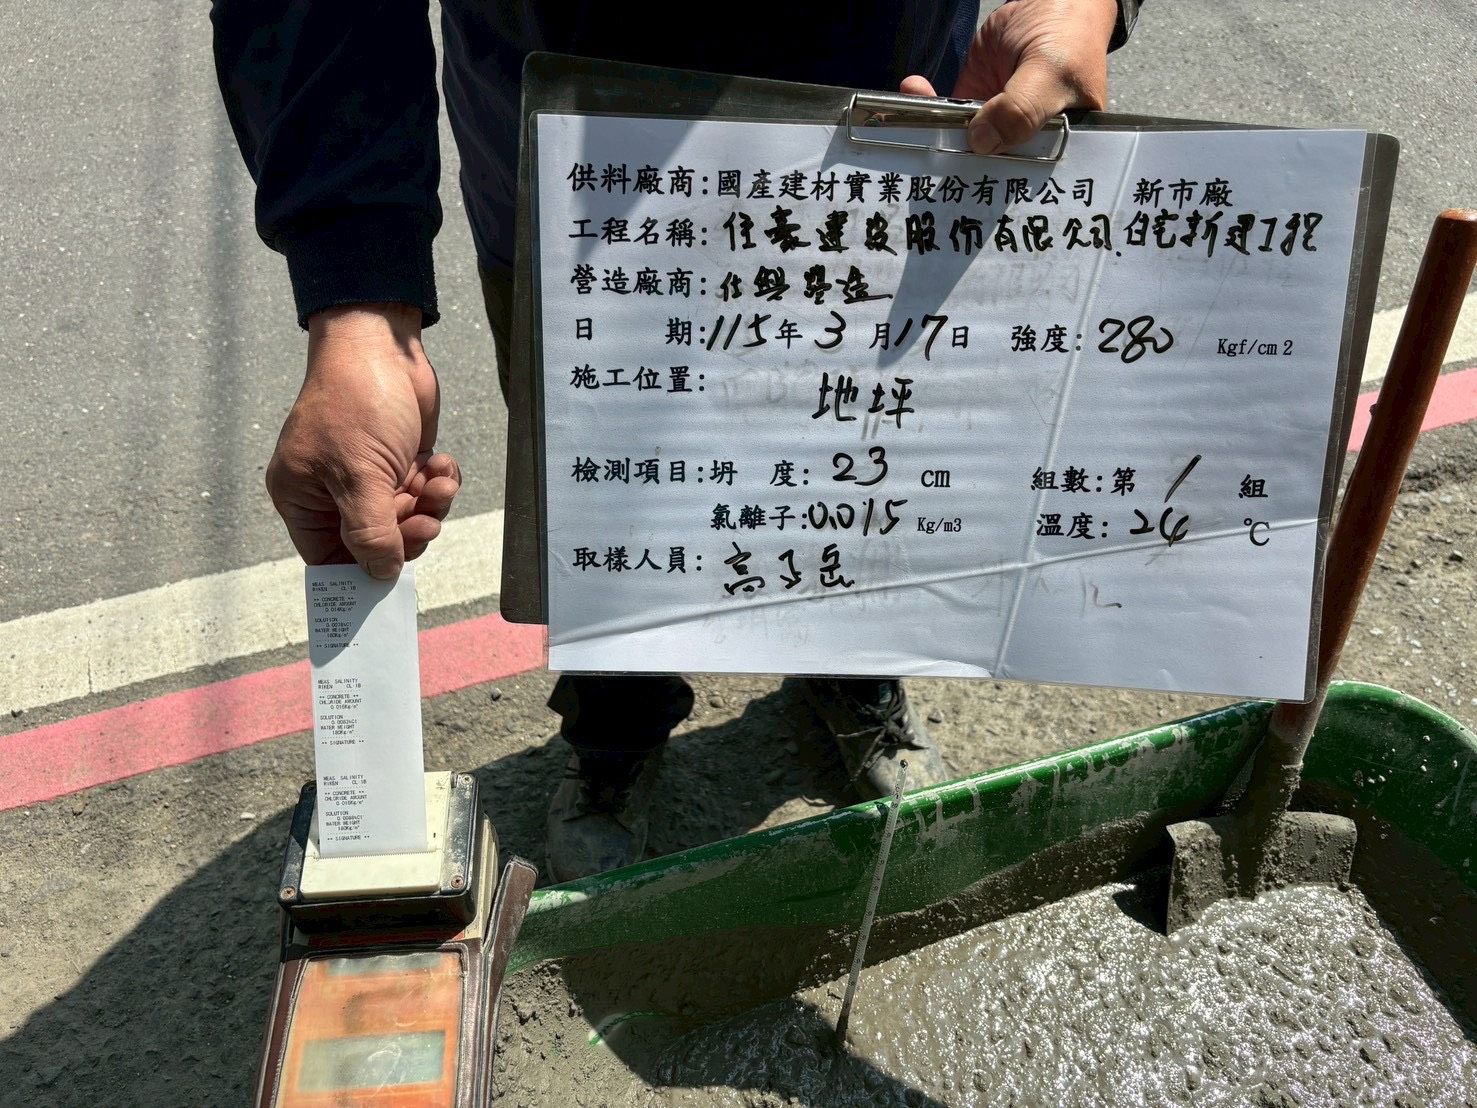 供料廠商:國產建材實業股份有限公司 新市廠
工程名稱:佳豪建設股份有限公司住宅新建工程
營造廠商:仕興營造
日 期:115年3月17日 強度:280 Kgf/cm2
施工位置:地坪
檢測項目:坍 度:23 cm 組數:第1組
氯離子:0.015 Kg/m3 溫度:24 ℃
取樣人員:高子岳
MEAS SALINITY
RIKEN CL-1B
** CONCRETE **
CHLORIDE AMOUNT
0.014Kg/m³
SOLUTION
WATER WEIGHT
180Kg/m³
** SIGNATURE **
MEAS SALINITY
RIKEN CL-1B
** CONCRETE **
CHLORIDE AMOUNT
0.016Kg/m³
SOLUTION
WATER WEIGHT
180Kg/m³
** SIGNATURE **
MEAS SALINITY
RIKEN CL-1B
** CONCRETE **
CHLORIDE AMOUNT
0.016Kg/m³
SOLUTION
WATER WEIGHT
180Kg/m³
** SIGNATURE **